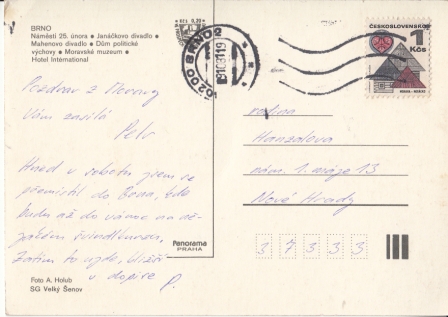 BRNO
Náměstí 25. února • Janáčkovo divadlo •
Mahenovo divadlo • Dům politické
výchovy • Moravské muzeum •
Hotel International
Pozdrav z Moravy
Vám zasílá
Petr
Hned v sobotu jsem se
přemístil do Brna, kde
budu až do vánoc na
Zatím to ujde, bližší
v dopise P.
Foto A. Holub
SG Velký Šenov
Panorama
PRAHA
KČS 0,30
60200 BRNO 2
ČESKOSLOVENSKO
1
Kčs
rodina
Hanzalova
nám. 1. máje 13
Nové Hrady
3 7 3 3 3